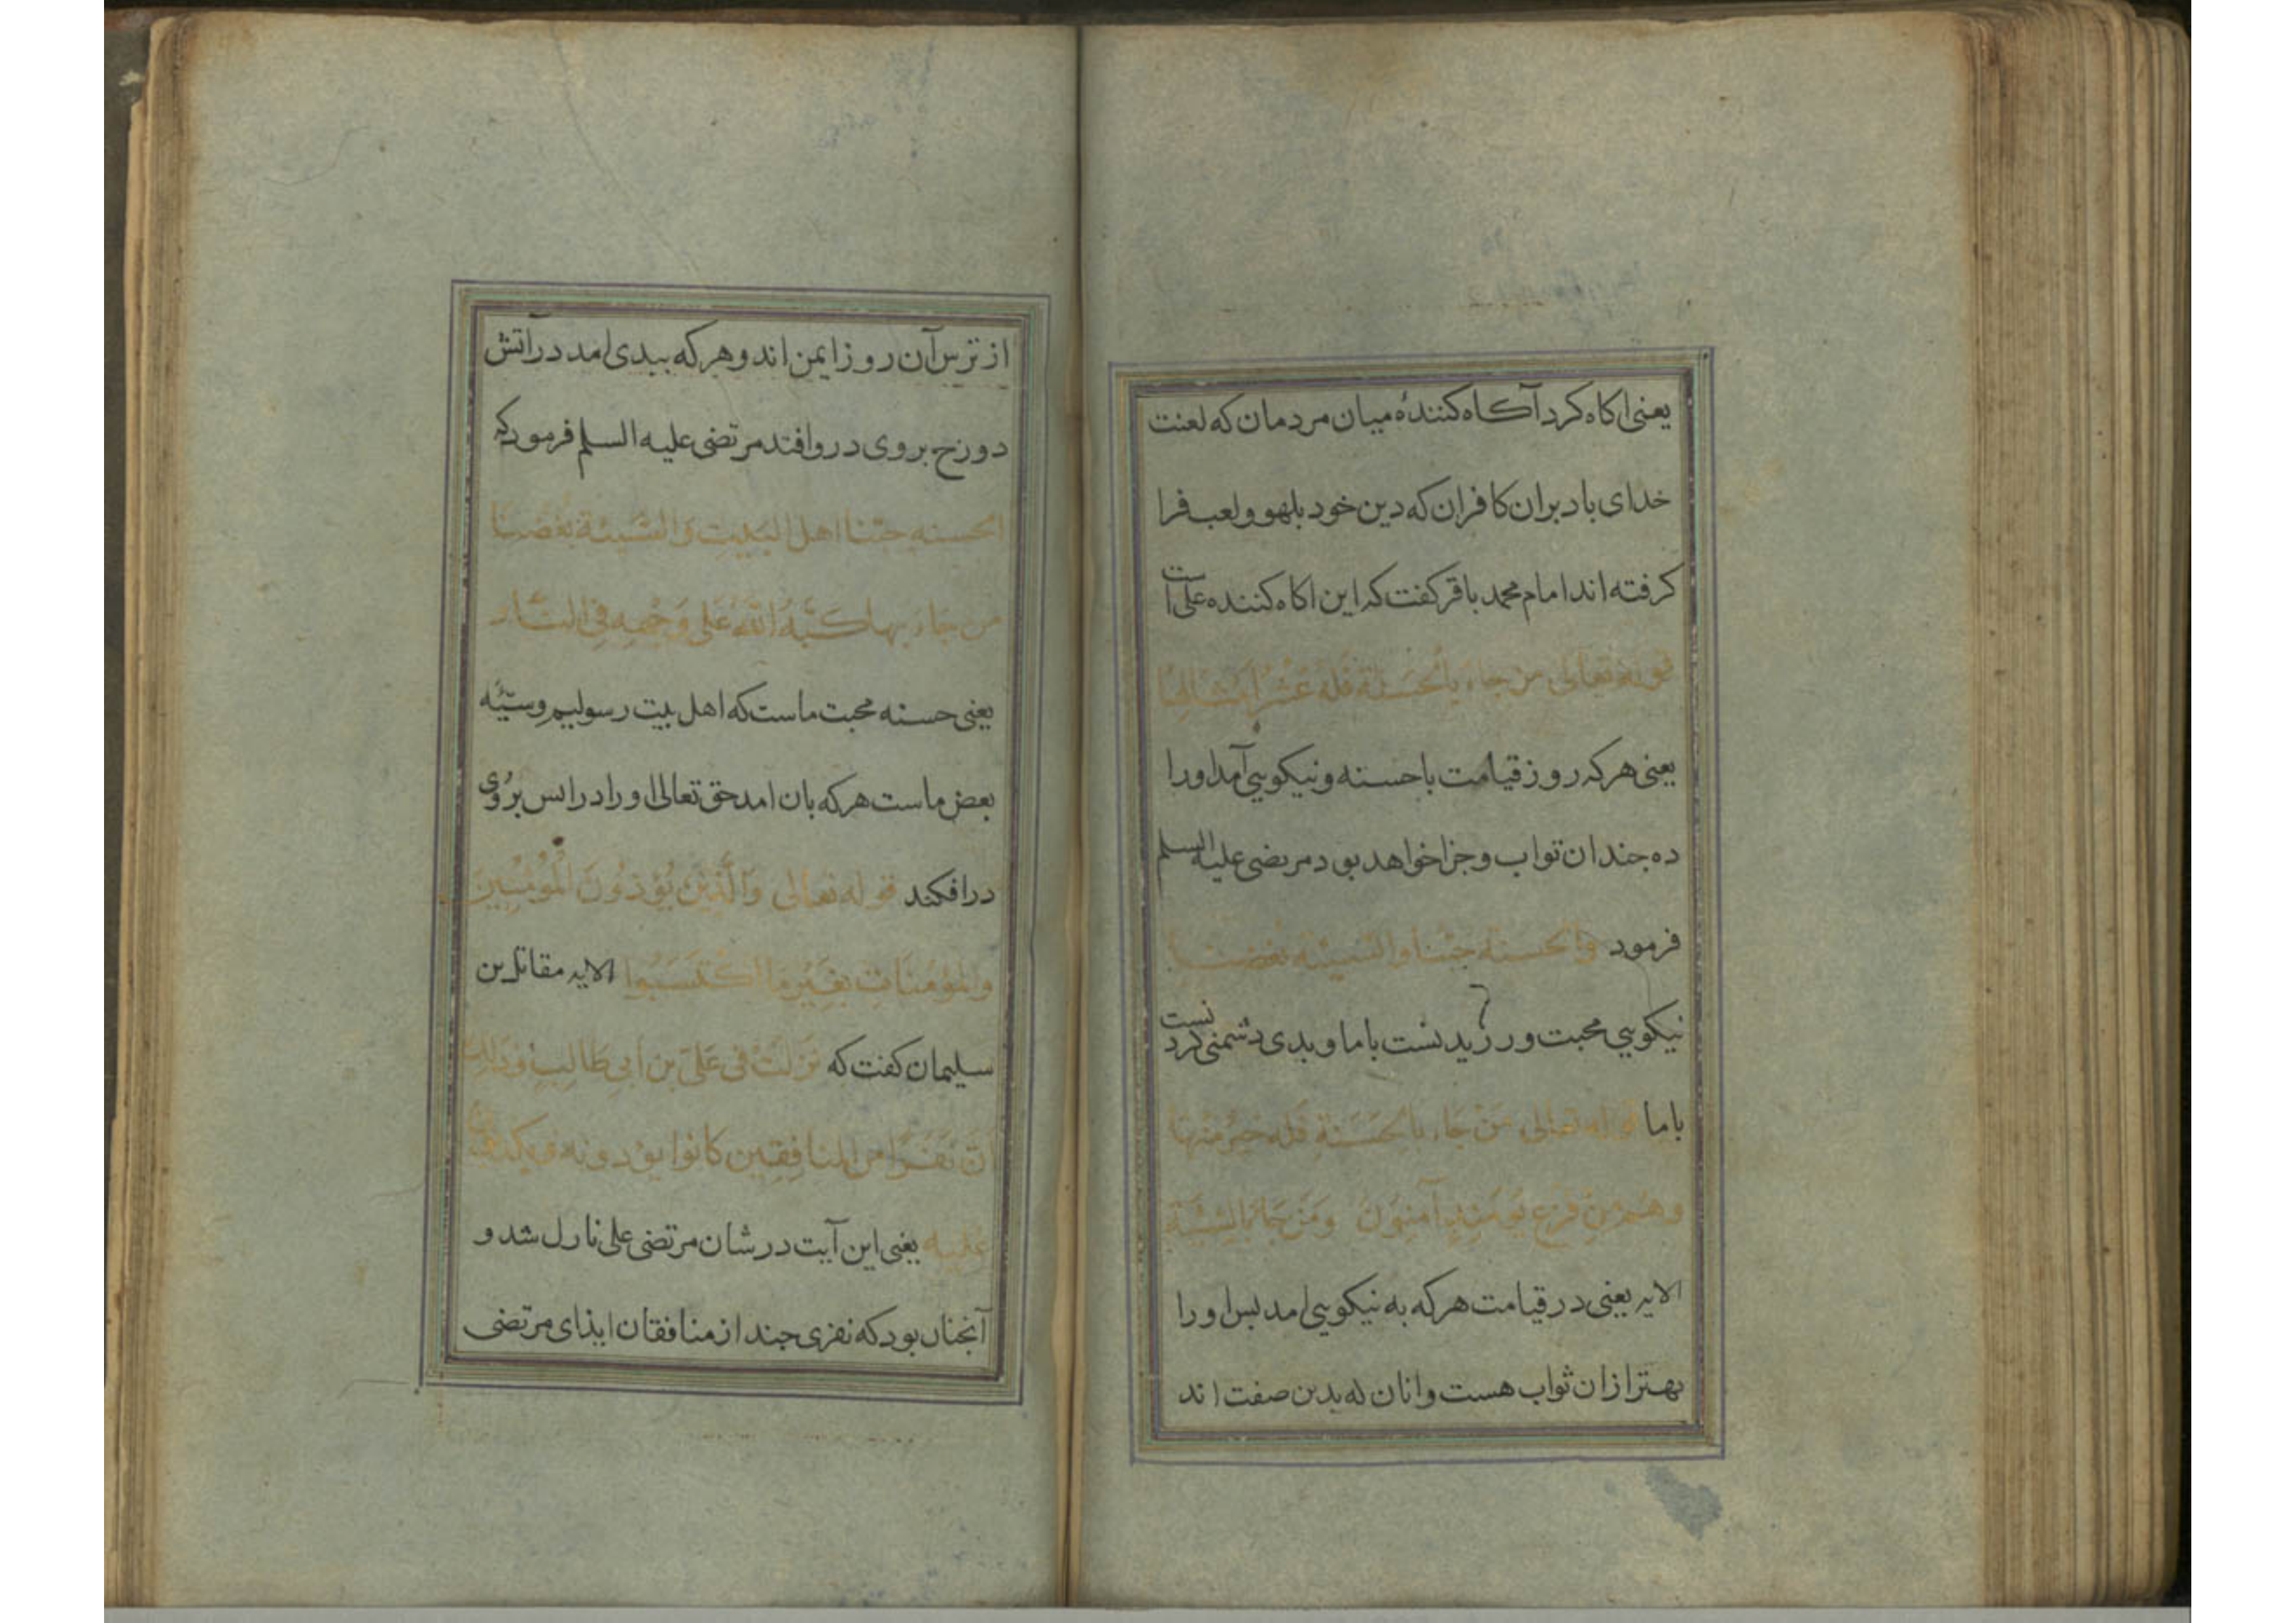 یعنی اکاه کرد آکاه کنندۀ میان مردمان که لعنت
خدای باد بران کافران که دین خود بلهو و لعب فرا
کرفته اند امام محمد باقر کفت که این اکاه کننده علی است
قوله تعالی من جاء بالحسنة فله عشر امثالها
یعنی هر که روز قیامت با حسنه و نیکویی آمد او را
ده جندان تواب و جزا خواهد بود مرتضی علیه السلم
فرمود الحسنة حبنا والسیئه بغضنا
نیکویی محبت ورزیدنست با ما و بدی دشمنی کردنست
با ما قوله تعالی من جاء بالحسنة فله خیر منها
وهم من فزع یومئذ آمنون ومن جاء بالسیئة
الایه یعنی در قیامت هر که به نیکویی امد بس او را
بهتر از ان ثواب هست و انان که بدین صفت اند
از ترس آن روز ایمن اند و هر که ببدی امد در آتش
دوزخ بروی در روافتد مرتضی علیه السلم فرمود که
الحسنه حبنا اهل البیت والسیئة بغضنا
من جاء بها کبّه الله علی وجهه فی النار
یعنی حسنه محبت ماست که اهل بیت رسولیم و سیّئه
بعض ماست هر که بان امد حق تعالی او را در اتس بروی
درافکند قوله تعالی وَالَّذِینَ یُؤذُونَ الْمُؤمِنِینَ
والمؤمنات بغیر ما اکتسبوا الایه مقاتل بن
سلیمان کفت که نزلت فی علی بن ابی طالب وذلك
ان نفرا من المنافقین کانوا یؤذونه ویکذبون
علیه یعنی این آیت در شان مرتضی علی نازل شد و
آنجنان بود که نفری جند از منافقان ایذای مرتضی